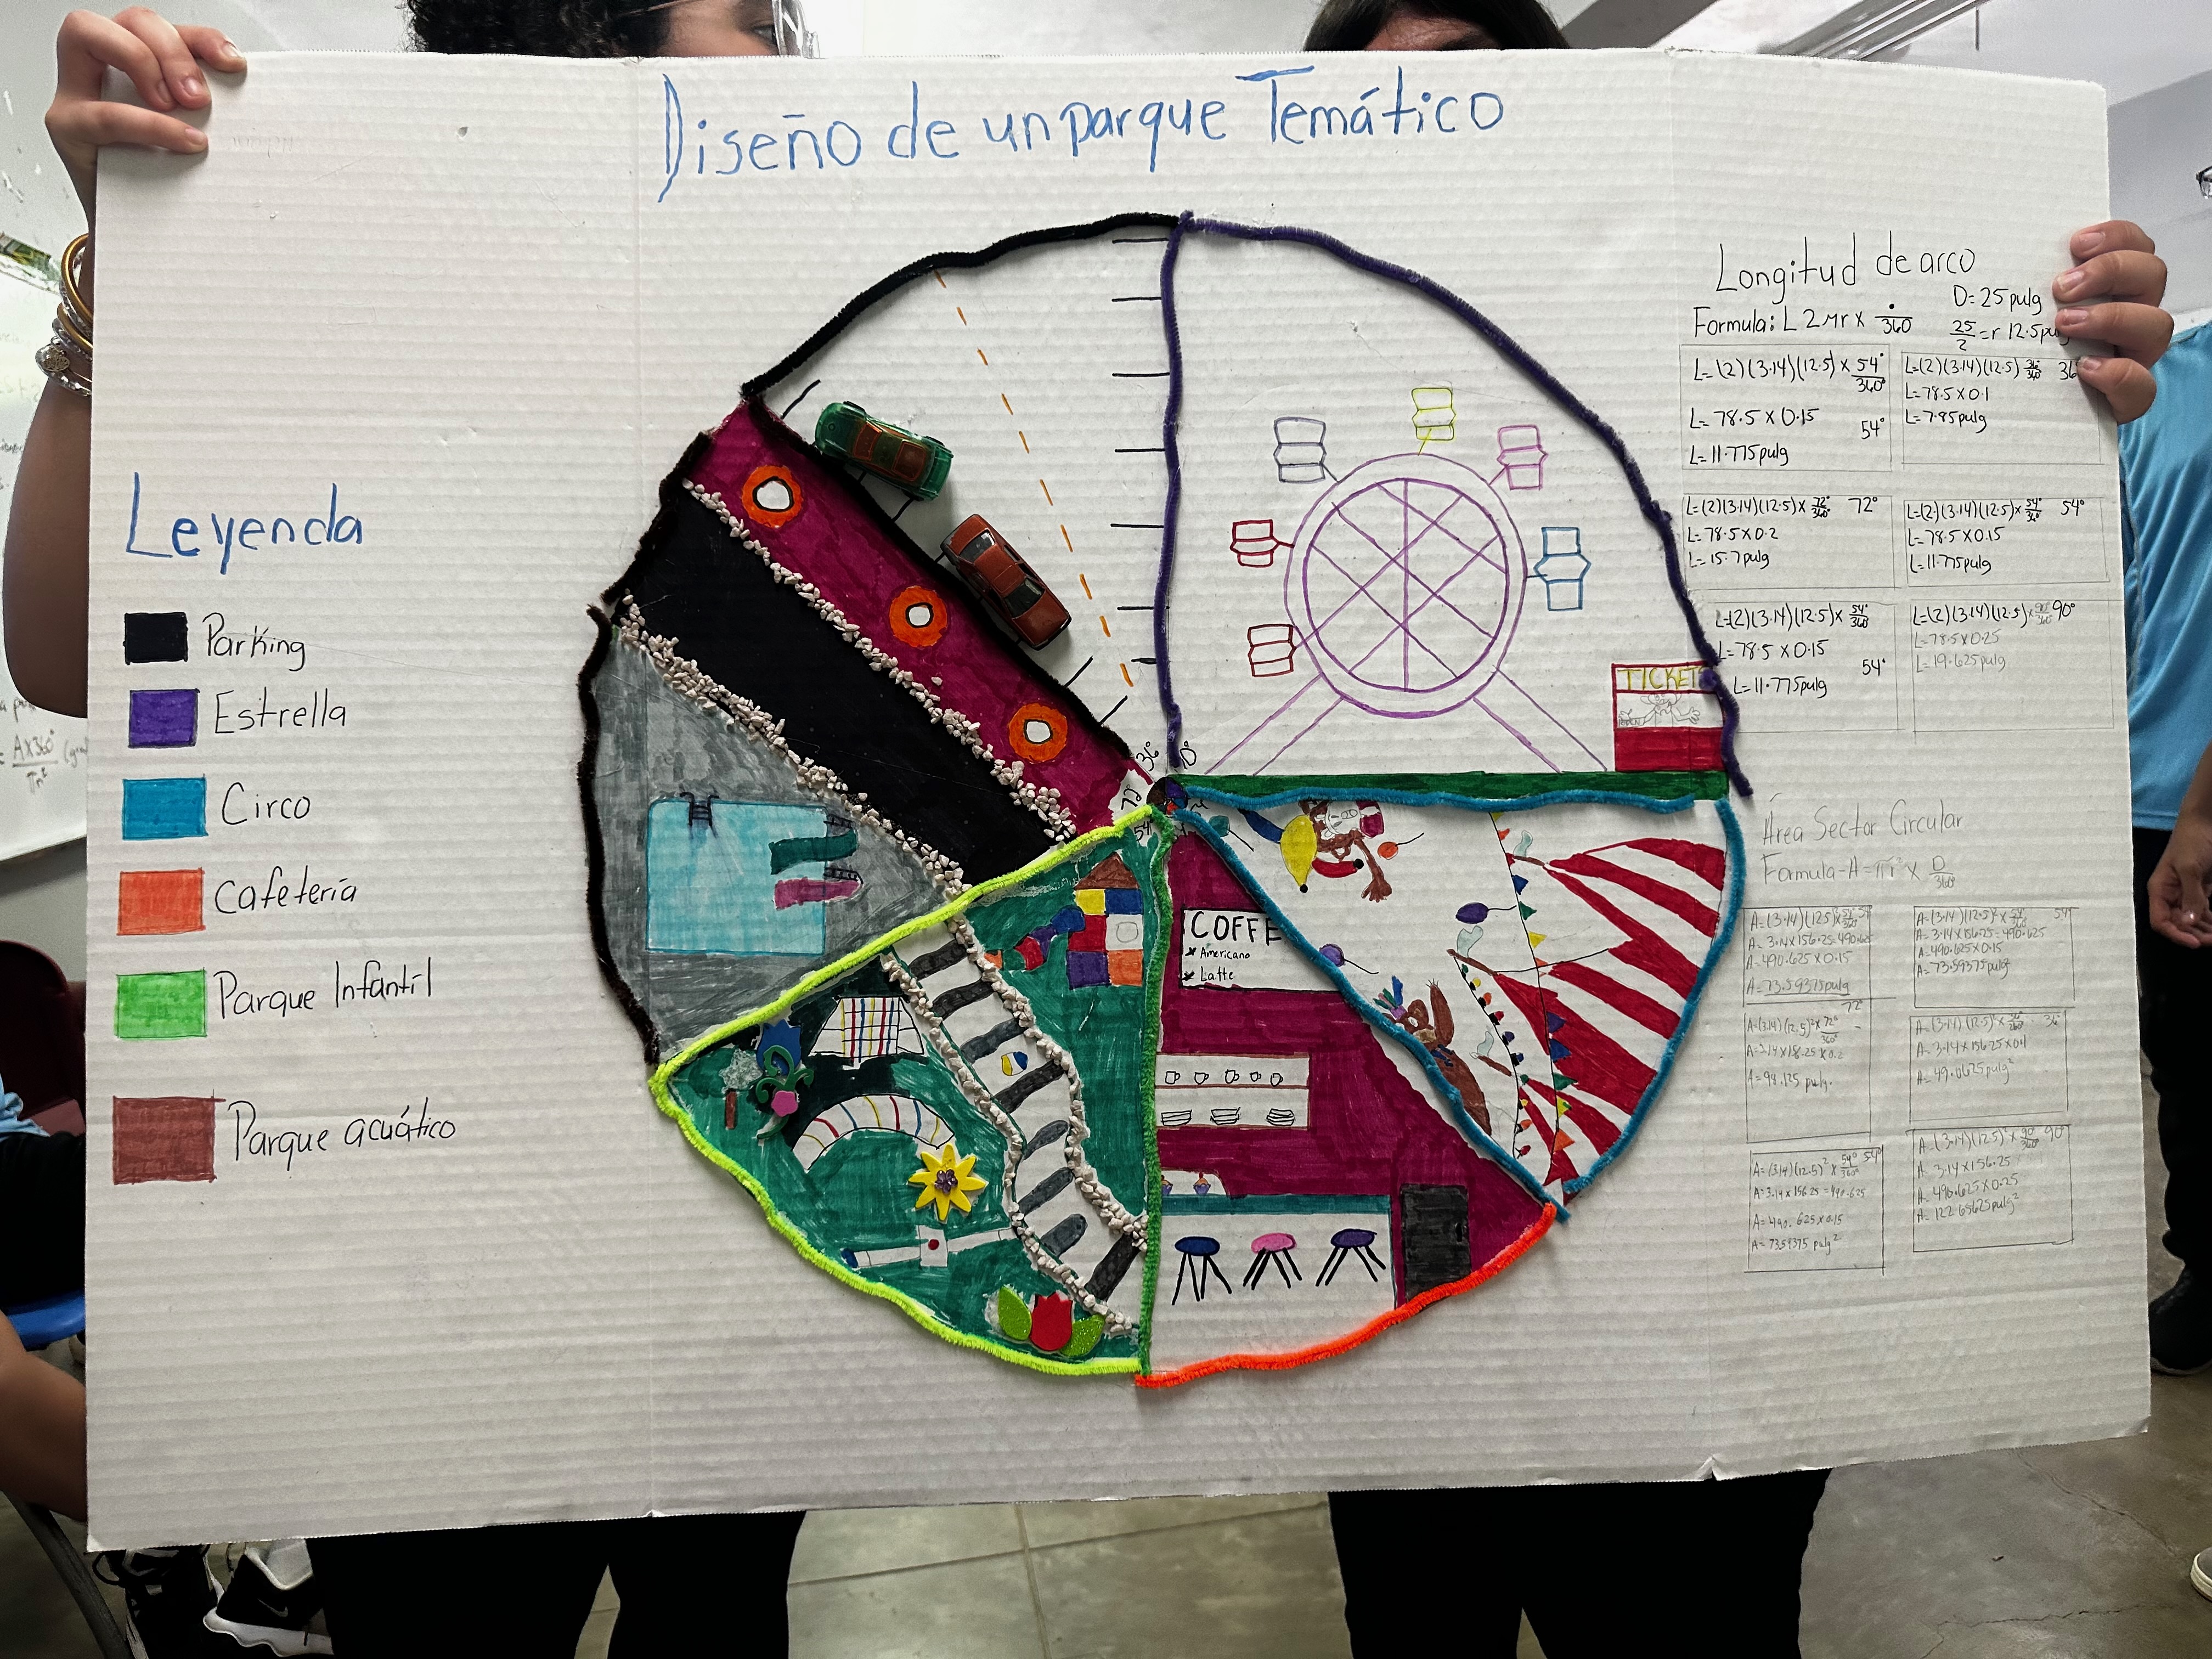 Diseño de un parque Temático
Leyenda
Parking
Estrella
Circo
Cafetería
Parque Infantil
Parque acuático
TICKET
36°
72
54
COFFE
Americano
Latte
Longitud de arco
D=25 pulg
Formula: L 2πr x °/360
25/2 = r 12.5 pu
L=(2)(3.14)(12.5) x 54°/360°
L= 78.5 x 0.15
54°
L= 11.775 pulg
L=(2)(3.14)(12.5) 36°/360° 36
L=78.5 x 0.1
L=7.85 pulg
L=(2)(3.14)(12.5) x 72°/360° 72°
L= 78.5 x 0.2
L= 15.7 pulg
L=(2)(3.14)(12.5) x 54°/36° 54°
L=78.5 x 0.15
L=11.775 pulg
L=(2)(3.14)(12.5) x 54°/360
L=78.5 x 0.15
54°
L= 11.775 pulg
L=(2)(3.14)(12.5) x 90°/360° 90°
L=78.5 x 0.25
L=19.625 pulg
Área Sector Circular
Formula-A=πr² x D/360°
A=(3.14)(12.5)² x 54°/360°
A=3.14 x 156.25=490.625
A=490.625 x 0.15
A=73.59375 pulg
A=(3.14)(12.5)² x 54°/360° 54°
A=3.14 x 156.25=490.625
A=490.625 x 0.15
A=73.59375 pulg²
72°
A=(3.14)(12.5)² x 72°/360°
A=98.125 pulg.
A=(3.14)(12.5)² x 36°/360° 36°
A=3.14 x 156.25 x 0.1
A=49.0625 pulg²
A=(3.14)(12.5)² x 54°/360° 54°
A=3.14 x 156.25=490.625
A=490.625 x 0.15
A=73.59375 pulg²
A=(3.14)(12.5)² x 90°/360° 90°
A=3.14 x 156.25
A=490.625 x 0.25
A=122.65625 pulg²